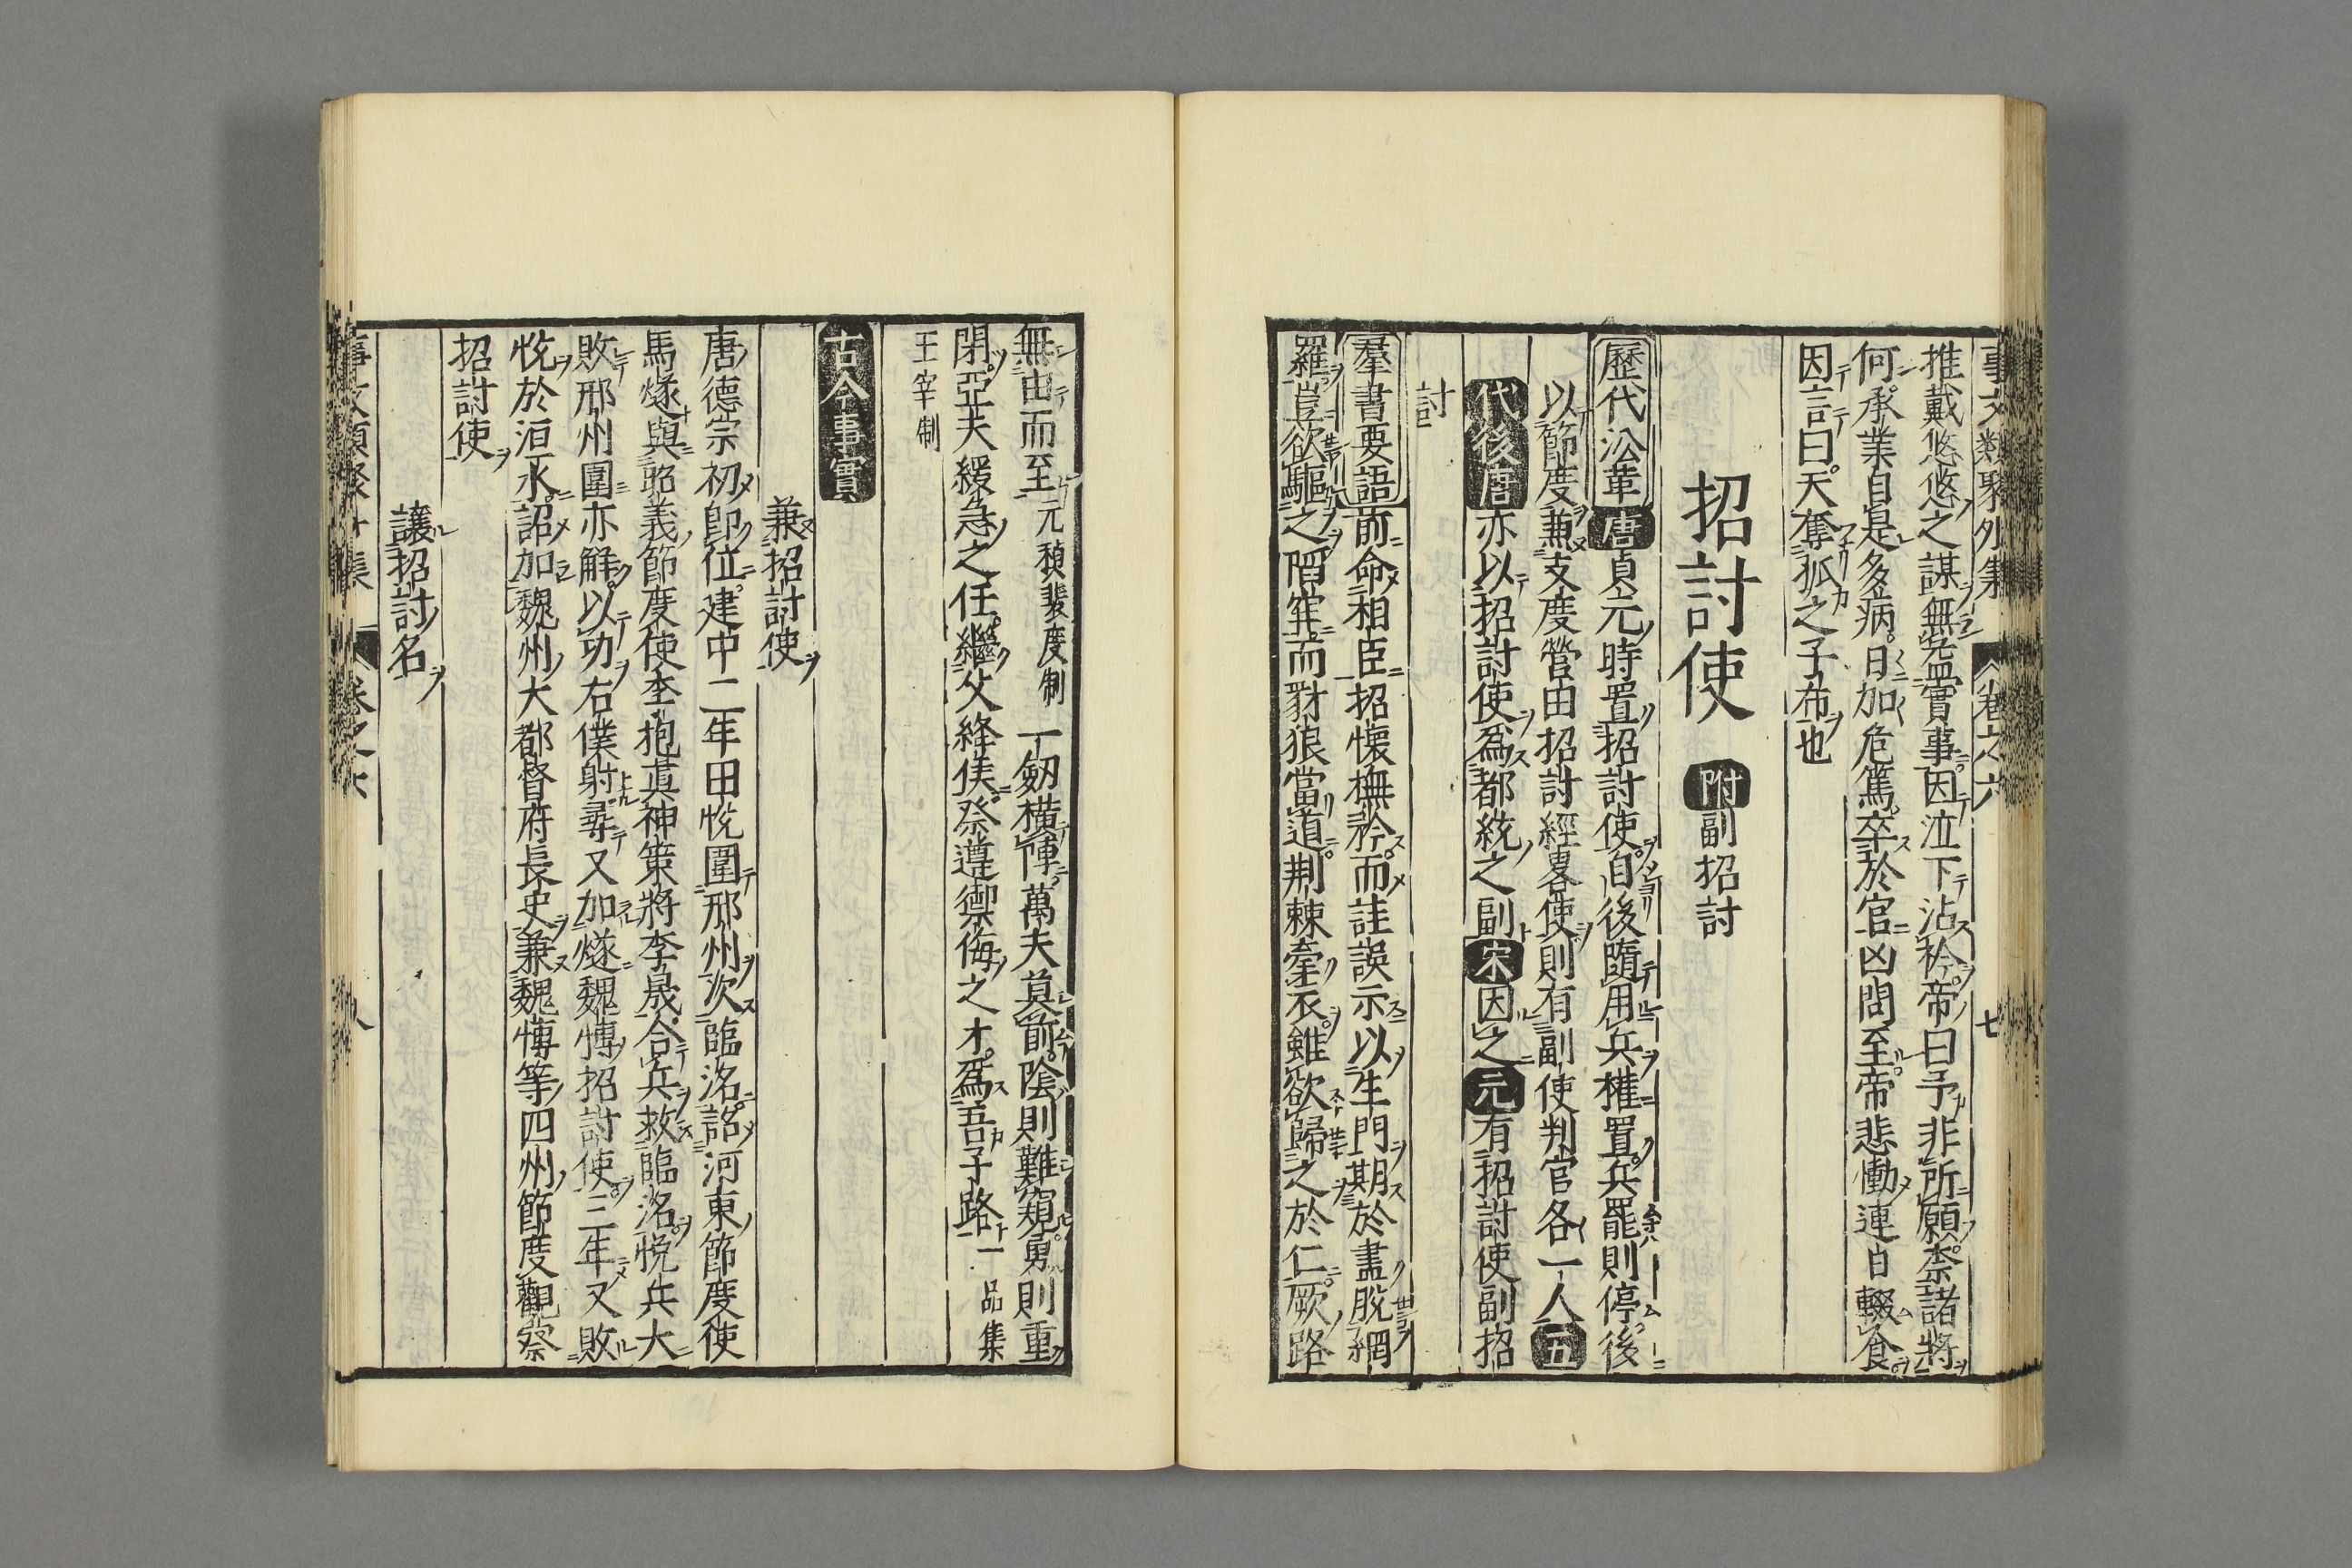 事文類聚外集 卷之六 七
推戴悠悠之謀無益實事因泣下沾衿帝曰予非所願柰諸將
何承業自是多病日加危篤卒於官凶問至帝悲慟連日輟食
因言曰天奪孤之子布也
招討使 附副招討
歷代沿革唐貞元時置招討使自後隨用兵權置兵罷則停後
以節度兼支度營由招討經畧使則有副使判官各一人五
代後唐亦以招討使爲都統之副宋因之元有招討使副招
討
羣書要語前命相臣招懷撫矜而詿誤示以生門期於盡脫網
羅豈欲驅之陷穽而豺狼當道荆棘牽衣雖欲歸之於仁厥路
無由而至元稹裴度制 一劒橫陣萬夫莫前陰則難窺勇則重
閉亞夫緩急之任繼父絳侯祭遵禦侮之才爲吾子路一品集
王宰制
古今事實
兼招討使
唐德宗初卽位建中二年田悅圍邢州次臨洺詔河東節度使
馬燧與昭義節度使李抱眞神策將李晟合兵救臨洺悅兵大
敗邢州圍亦解以功右僕射尋又加燧魏博招討使三年又敗
悅於洹水詔加魏州大都督府長史兼魏博等四州節度觀察
招討使
讓招討名
卷之六 八